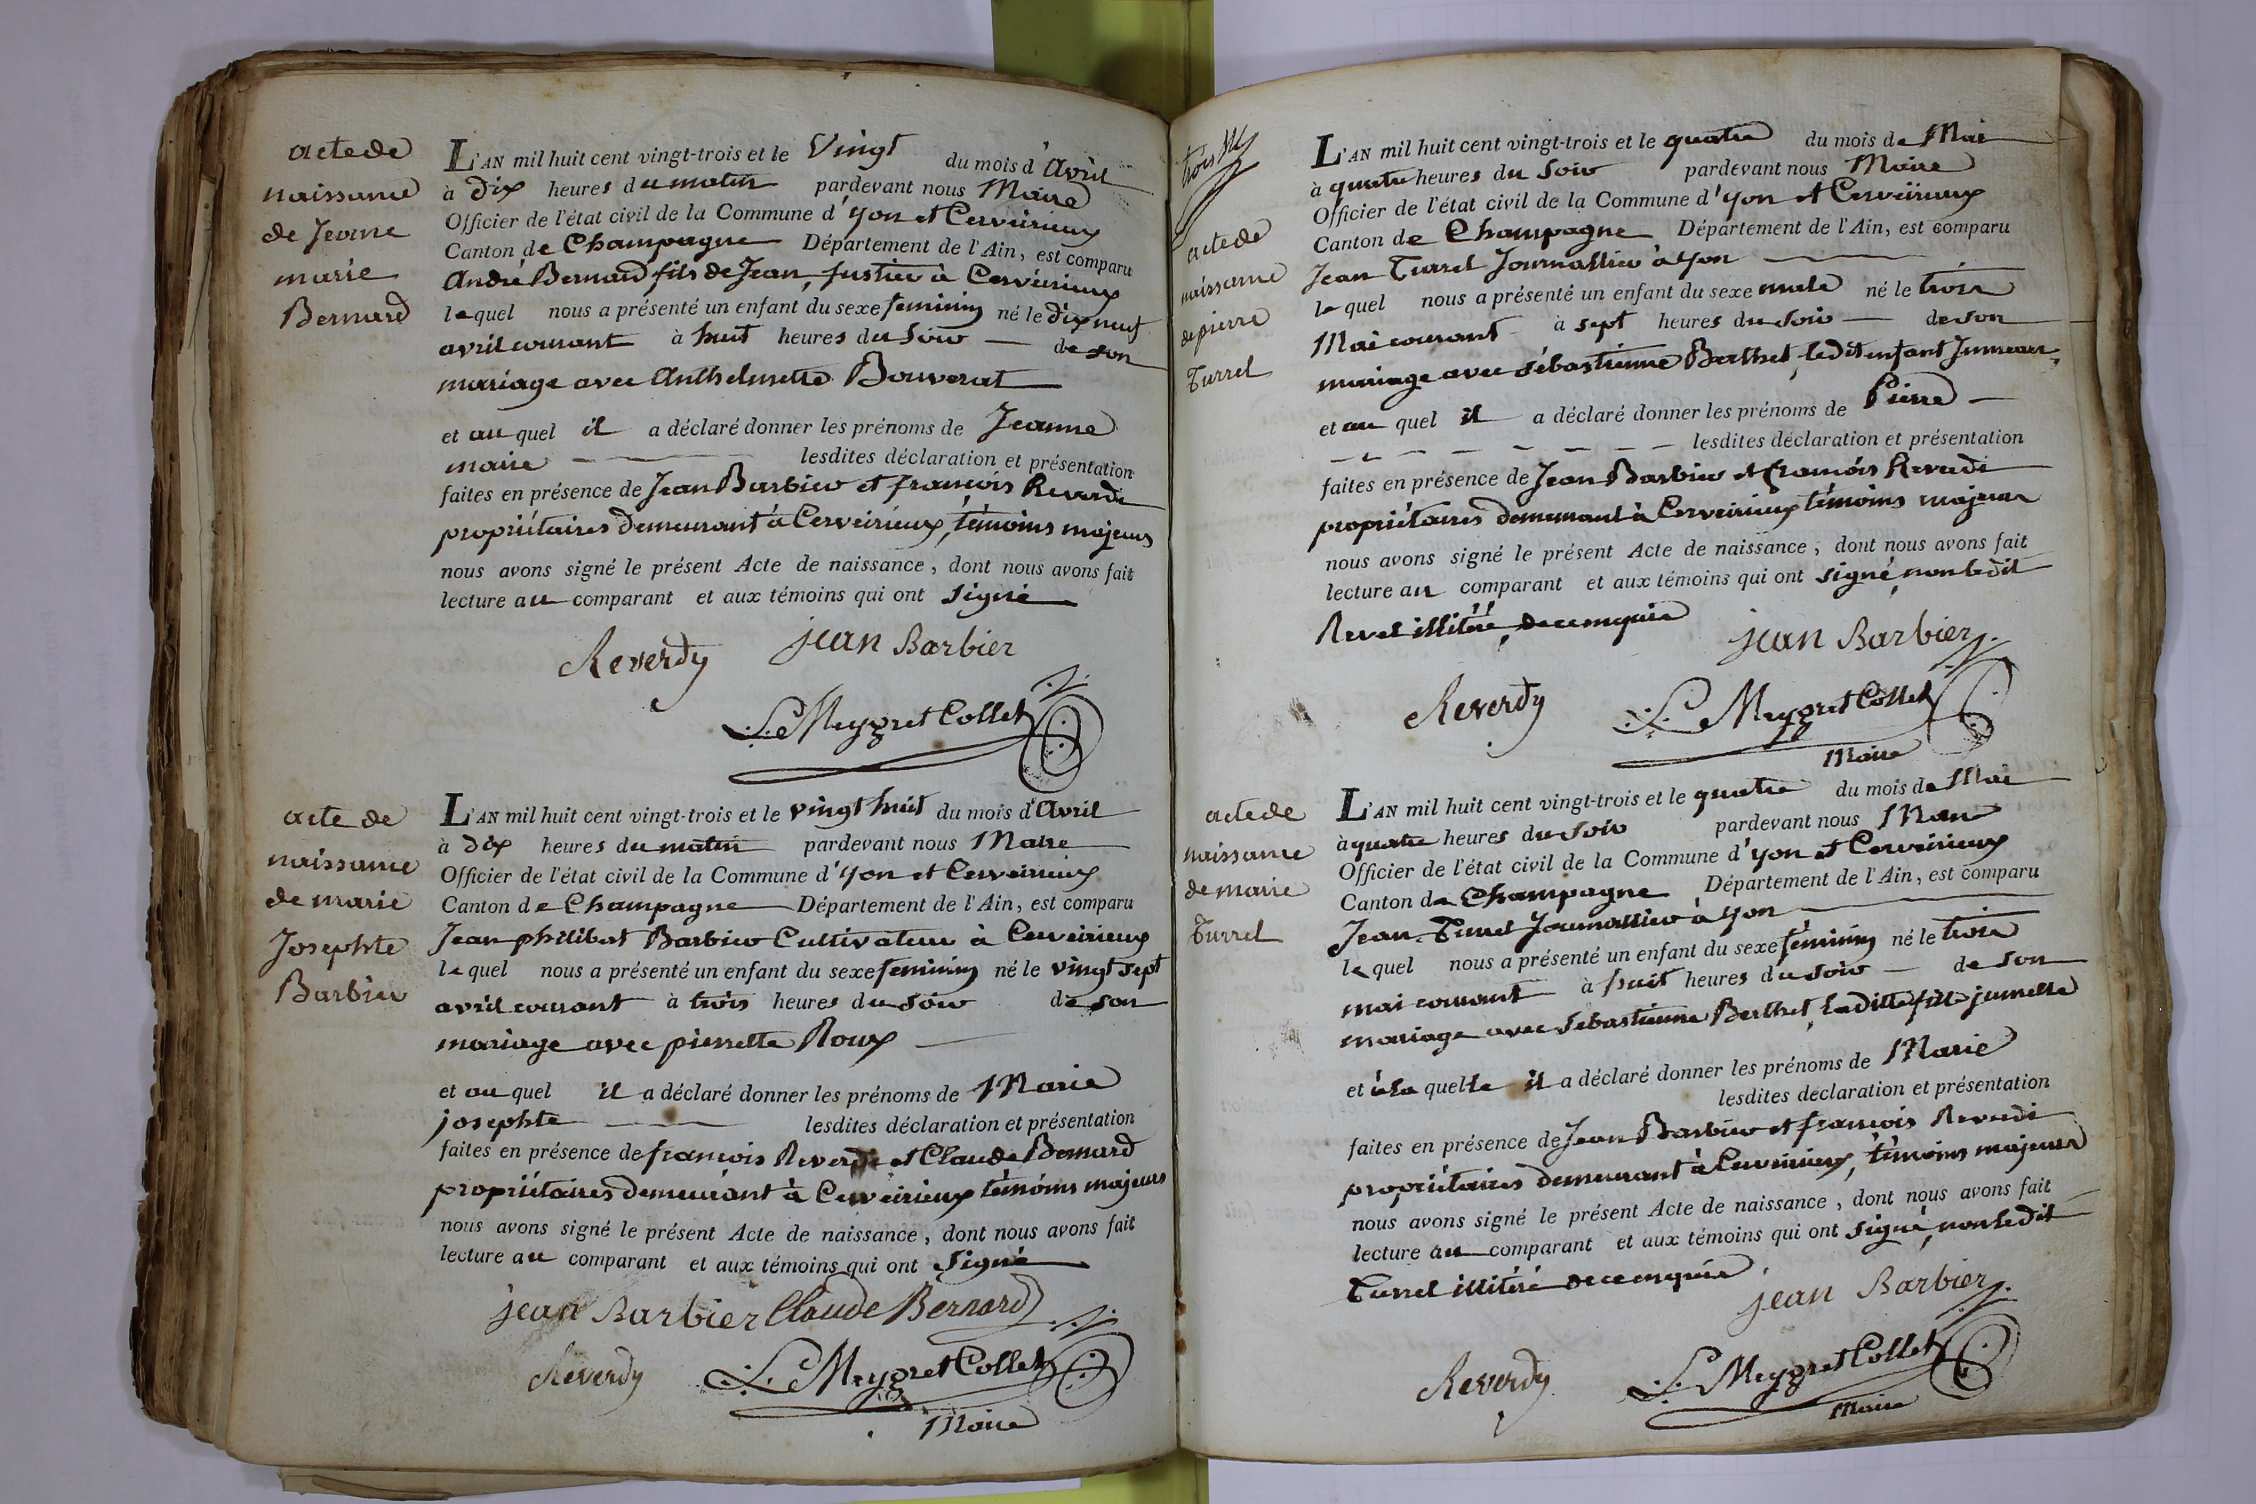 acte de
naissance
de Jeanne
marie
Bernard
L'AN mil huit cent vingt-trois et le Vingt du mois d'Avril
à dix heures du matin pardevant nous Maire
Officier de l'état civil de la Commune d'yon et Cerveirieux
Canton de Champagne Département de l'Ain, est comparu
André Bernard fils de Jean, fustier à Cerveirieux
lequel nous a présenté un enfant du sexe feminin né le dix neuf
avril courant à huit heures du Soir de son
mariage avec Anthelmette Bouverat
et au quel il a déclaré donner les prénoms de Jeanne
marie lesdites déclaration et présentation
faites en présence de Jean Barbier et françois Reverdi
propriétaires demeurant à Cerveirieux, témoins majeurs
nous avons signé le présent Acte de naissance, dont nous avons fait
lecture au comparant et aux témoins qui ont Signé
Reverdy jean Barbier
Le Meygret Collet
acte de
naissance
de marie
Josephte
Barbier
L'AN mil huit cent vingt-trois et le vingt huit du mois d'Avril
à dix heures du matin pardevant nous Maire
Officier de l'état civil de la Commune d'yon et Cerveirieux
Canton de Champagne Département de l'Ain, est comparu
Jean philibert Barbier Cultivateur à Cerveirieux
lequel nous a présenté un enfant du sexe feminin né le vingt sept
avril courant à trois heures du Soir de son
mariage avec pierrette Roux
et au quel il a déclaré donner les prénoms de Marie
josephte lesdites déclaration et présentation
faites en présence de françois Reverdi et Claude Bernard
propriétaires demeurant à Cerveirieux témoins majeurs
nous avons signé le présent Acte de naissance, dont nous avons fait
lecture au comparant et aux témoins qui ont Signé
jean Barbier Claude Bernard
Reverdy Le Meygret Collet
Maire
acte de
naissance
de pierre
Turrel
L'AN mil huit cent vingt-trois et le quatre du mois de Mai
à quatre heures du Soir pardevant nous Maire
Officier de l'état civil de la Commune d'yon et Cerveirieux
Canton de Champagne Département de l'Ain, est comparu
Jean Turrel Journallier à yon
lequel nous a présenté un enfant du sexe male né le trois
Mai courant à sept heures du Soir de son
mariage avec sébastienne Berthet, ledit enfant Jumeau,
et au quel il a déclaré donner les prénoms de Pierre
lesdites déclaration et présentation
faites en présence de Jean Barbier et françois Reverdi
propriétaires demeurant à Cerveirieux témoins majeurs
nous avons signé le présent Acte de naissance, dont nous avons fait
lecture au comparant et aux témoins qui ont signé, non ledit
illitéré, de ce enquis
jean Barbier
Reverdy Le Meygret Collet
Maire
acte de
naissance
de marie
Turrel
L'AN mil huit cent vingt-trois et le quatre du mois de Mai
à quatre heures du Soir pardevant nous Maire
Officier de l'état civil de la Commune d'yon et Cerveirieux
Canton de Champagne Département de l'Ain, est comparu
Jean Turrel Journallier à yon
lequel nous a présenté un enfant du sexe féminin né le trois
mai courant à huit heures du Soir de son
mariage avec sebastienne Berthet, ladite fille jumelle
et à la quelle il a déclaré donner les prénoms de Marie
lesdites déclaration et présentation
faites en présence de Jean Barbier et françois Reverdi
propriétaires demeurant à Cerveirieux, témoins majeurs
nous avons signé le présent Acte de naissance, dont nous avons fait
lecture au comparant et aux témoins qui ont signé, non ledit
Turrel illitéré de ce enquis
jean Barbier
Reverdy Le Meygret Collet
Maire